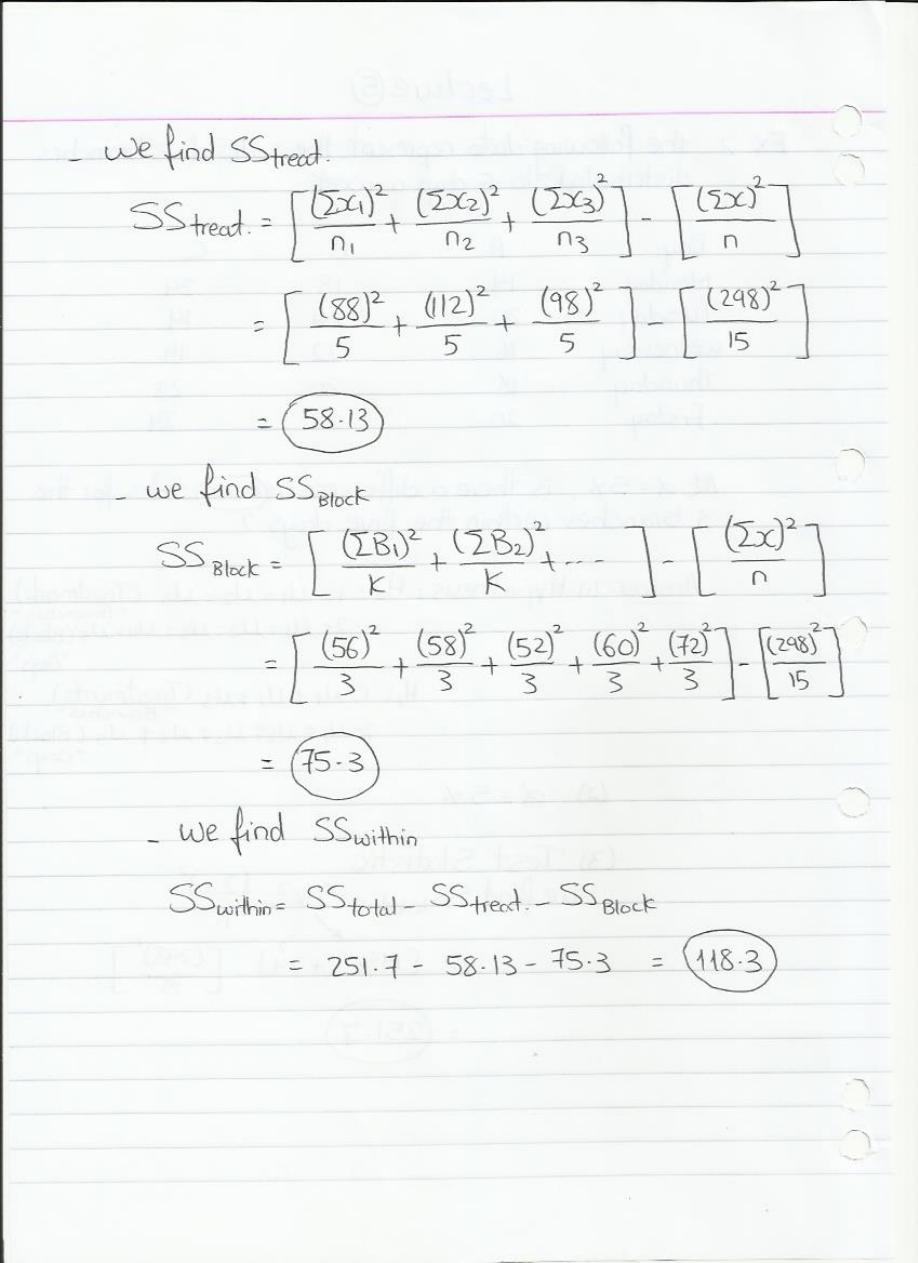 - we find SS treat.
SS treat. = [ (Σx₁)²/n₁ + (Σx₂)²/n₂ + (Σx₃)²/n₃ ] - [ (Σx)²/n ]
= [ (88)²/5 + (112)²/5 + (98)²/5 ] - [ (298)²/15 ]
= 58.13
- we find SS Block
SS Block = [ (ΣB₁)²/K + (ΣB₂)²/K + ... ] - [ (Σx)²/n ]
= [ (56)²/3 + (58)²/3 + (52)²/3 + (60)²/3 + (72)²/3 ] - [ (298)²/15 ]
= 75.3
- we find SS within
SS within = SS total - SS treat. - SS Block
= 251.7 - 58.13 - 75.3 = 118.3